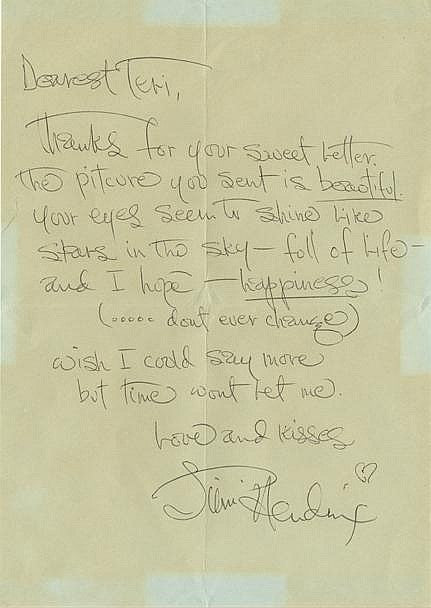 Dearest Teri,
Thanks for your sweet letter.
The pitcure you sent is beautiful.
your eyes seem to shine like
stars in the sky — full of life —
and I hope — happiness!
(..... dont ever change)
wish I could say more
but time wont let me.
Love and kisses
Jimi Hendrix